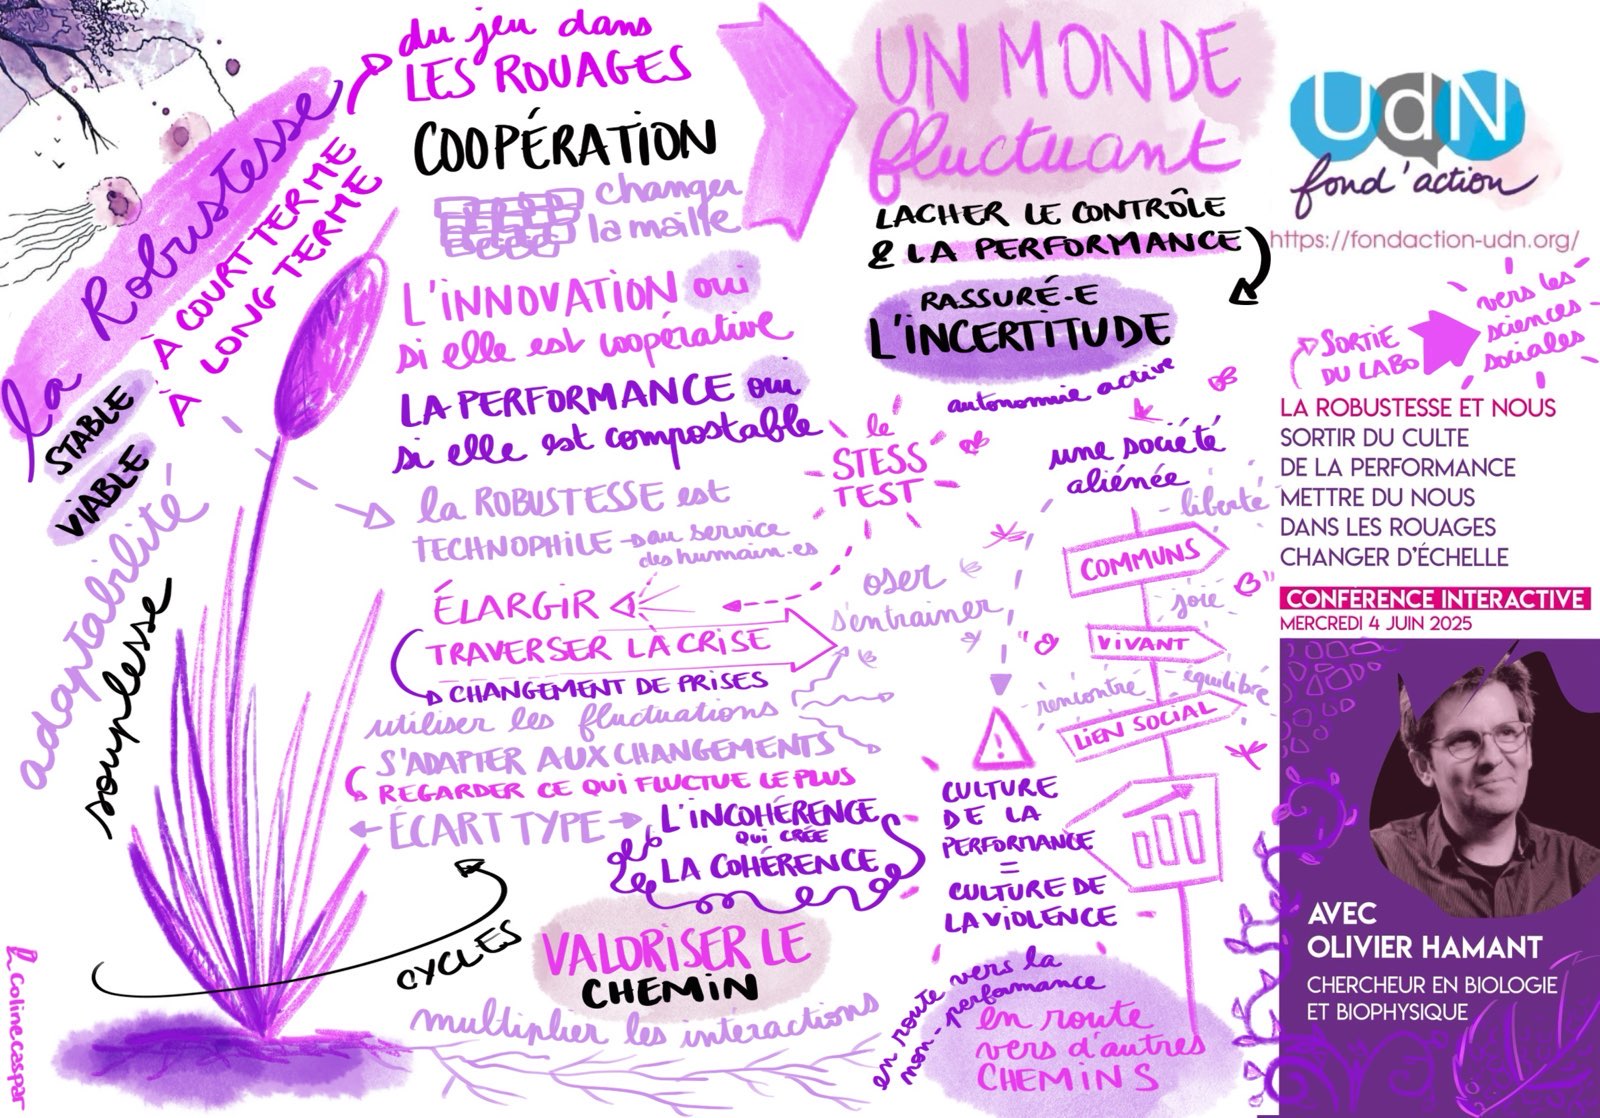 la Robustesse
À COURT TERME
À LONG TERME
STABLE
VIABLE
adaptabilité
souplesse
du jeu dans
LES ROUAGES
COOPÉRATION
changer
la maille
L'INNOVATION oui
si elle est coopérative
LA PERFORMANCE oui
si elle est compostable
la ROBUSTESSE est
TECHNOPHILE au service
des humain·es
le
STESS
TEST
ÉLARGIR
TRAVERSER LA CRISE
CHANGEMENT DE PRISES
utiliser les fluctuations
S'ADAPTER AUX CHANGEMENTS
REGARDER CE QUI FLUCTUE LE PLUS
ÉCART TYPE
L'INCOHÉRENCE
QUI CRÉE
LA COHÉRENCE
CYCLES
VALORISER LE
CHEMIN
multiplier les interactions
h colinecaspar
UN MONDE
fluctuant
LACHER LE CONTRÔLE
& LA PERFORMANCE
RASSURÉ-E
L'INCERTITUDE
autonomie active
une société
aliénée
oser
s'entrainer
liberté
COMMUNS
joie
VIVANT
rencontre
équilibre
LIEN SOCIAL
CULTURE
DE LA
PERFORMANCE
=
CULTURE DE
LA VIOLENCE
en route vers la
non-performance
en route
vers d'autres
CHEMINS
UdN
fond'action
https://fondaction-udn.org/
SORTIE
DU LABO
vers les
sciences
sociales
LA ROBUSTESSE ET NOUS
SORTIR DU CULTE
DE LA PERFORMANCE
METTRE DU NOUS
DANS LES ROUAGES
CHANGER D'ÉCHELLE
CONFÉRENCE INTERACTIVE
MERCREDI 4 JUIN 2025
AVEC
OLIVIER HAMANT
CHERCHEUR EN BIOLOGIE
ET BIOPHYSIQUE